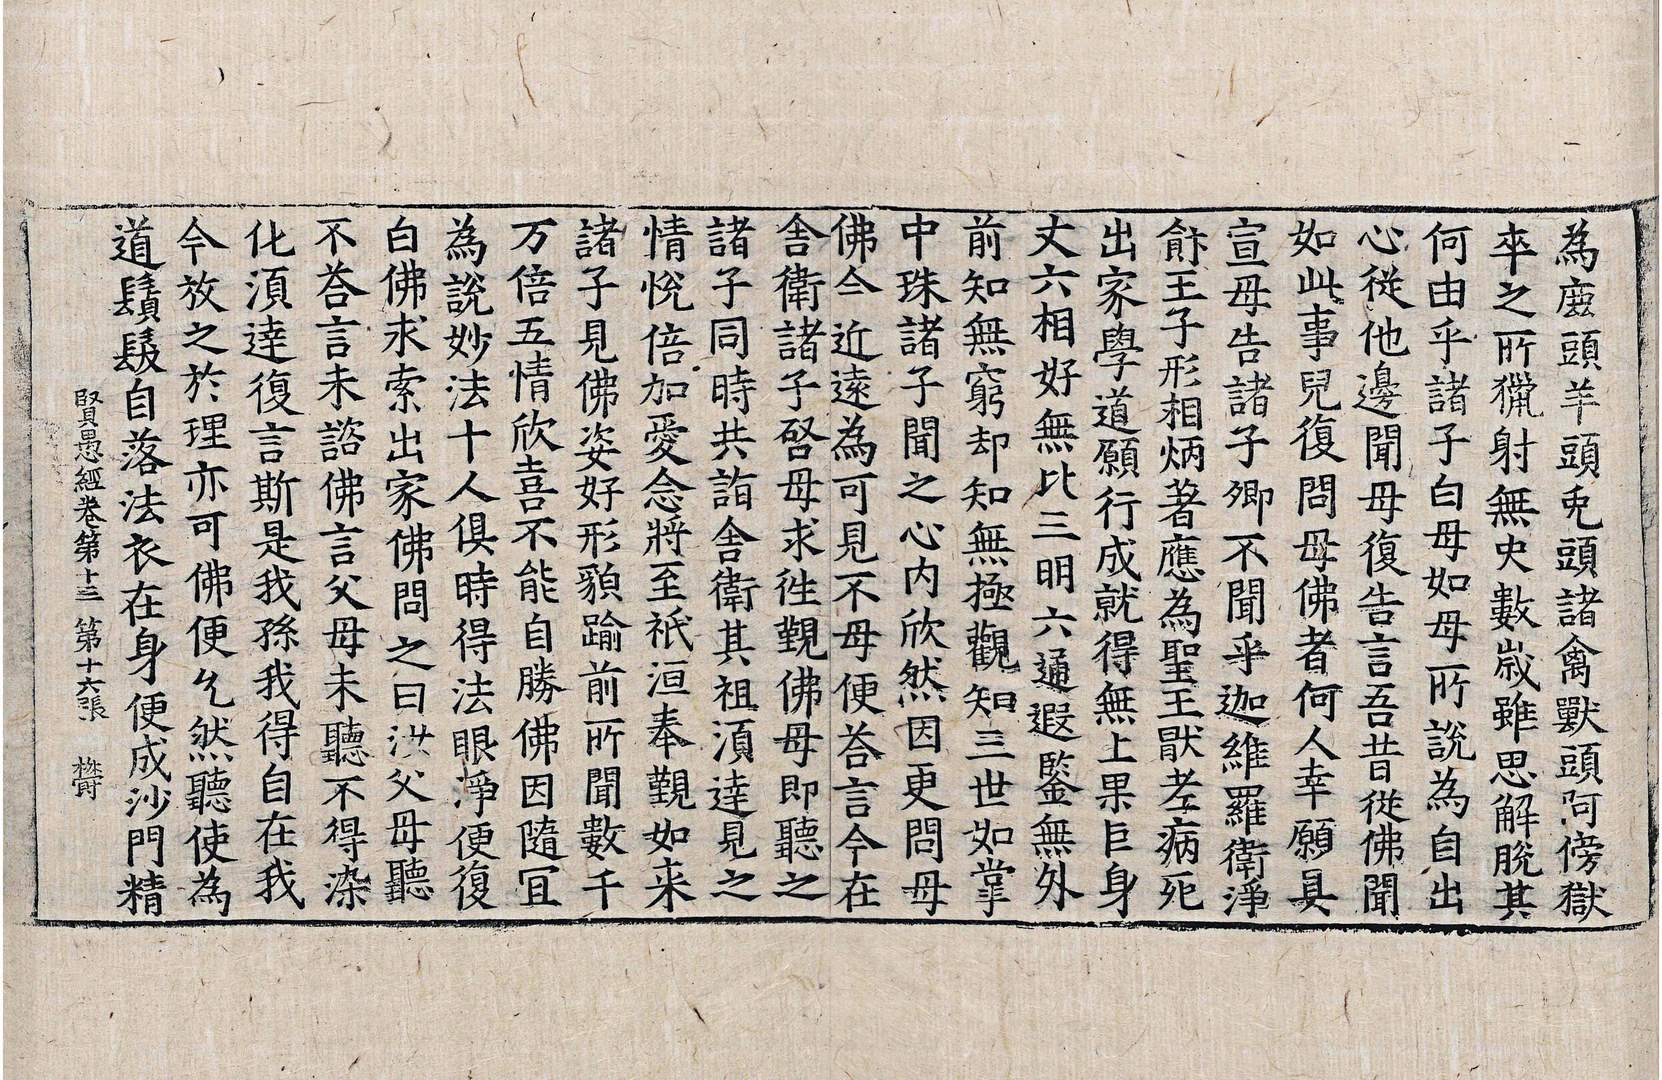 為鹿頭羊頭兎頭諸禽獸頭阿傍獄
卒之所獵射無央數歲雖思解脫其
何由乎諸子白母如母所說為自出
心從他邊聞母復告言吾昔從佛聞
如此事兒復問母佛者何人幸願具
宣母告諸子卿不聞乎迦維羅衛淨
飰王子形相炳著應為聖王猒老病死
出家學道願行成就得無上果巨身
丈六相好無比三明六通遐鑒無外
前知無窮却知無極觀知三世如掌
中珠諸子聞之心內欣然因更問母
佛今近遠為可見不母便荅言今在
舍衛諸子啓母求徃覲佛母即聽之
諸子同時共詣舍衛其祖湏達見之
情悅倍加愛念將至祇洹奉覲如来
諸子見佛姿好形貌踰前所聞數千
万倍五情欣喜不能自勝佛因隨冝
為說妙法十人俱時得法眼淨便復
白佛求索出家佛問之曰汝父母聽
不荅言未諮佛言父母未聽不得染
化湏達復言斯是我孫我得自在我
今放之於理亦可佛便允然聽使為
道鬚髮自落法衣在身便成沙門精
賢愚經卷第十三 第十六張 欝